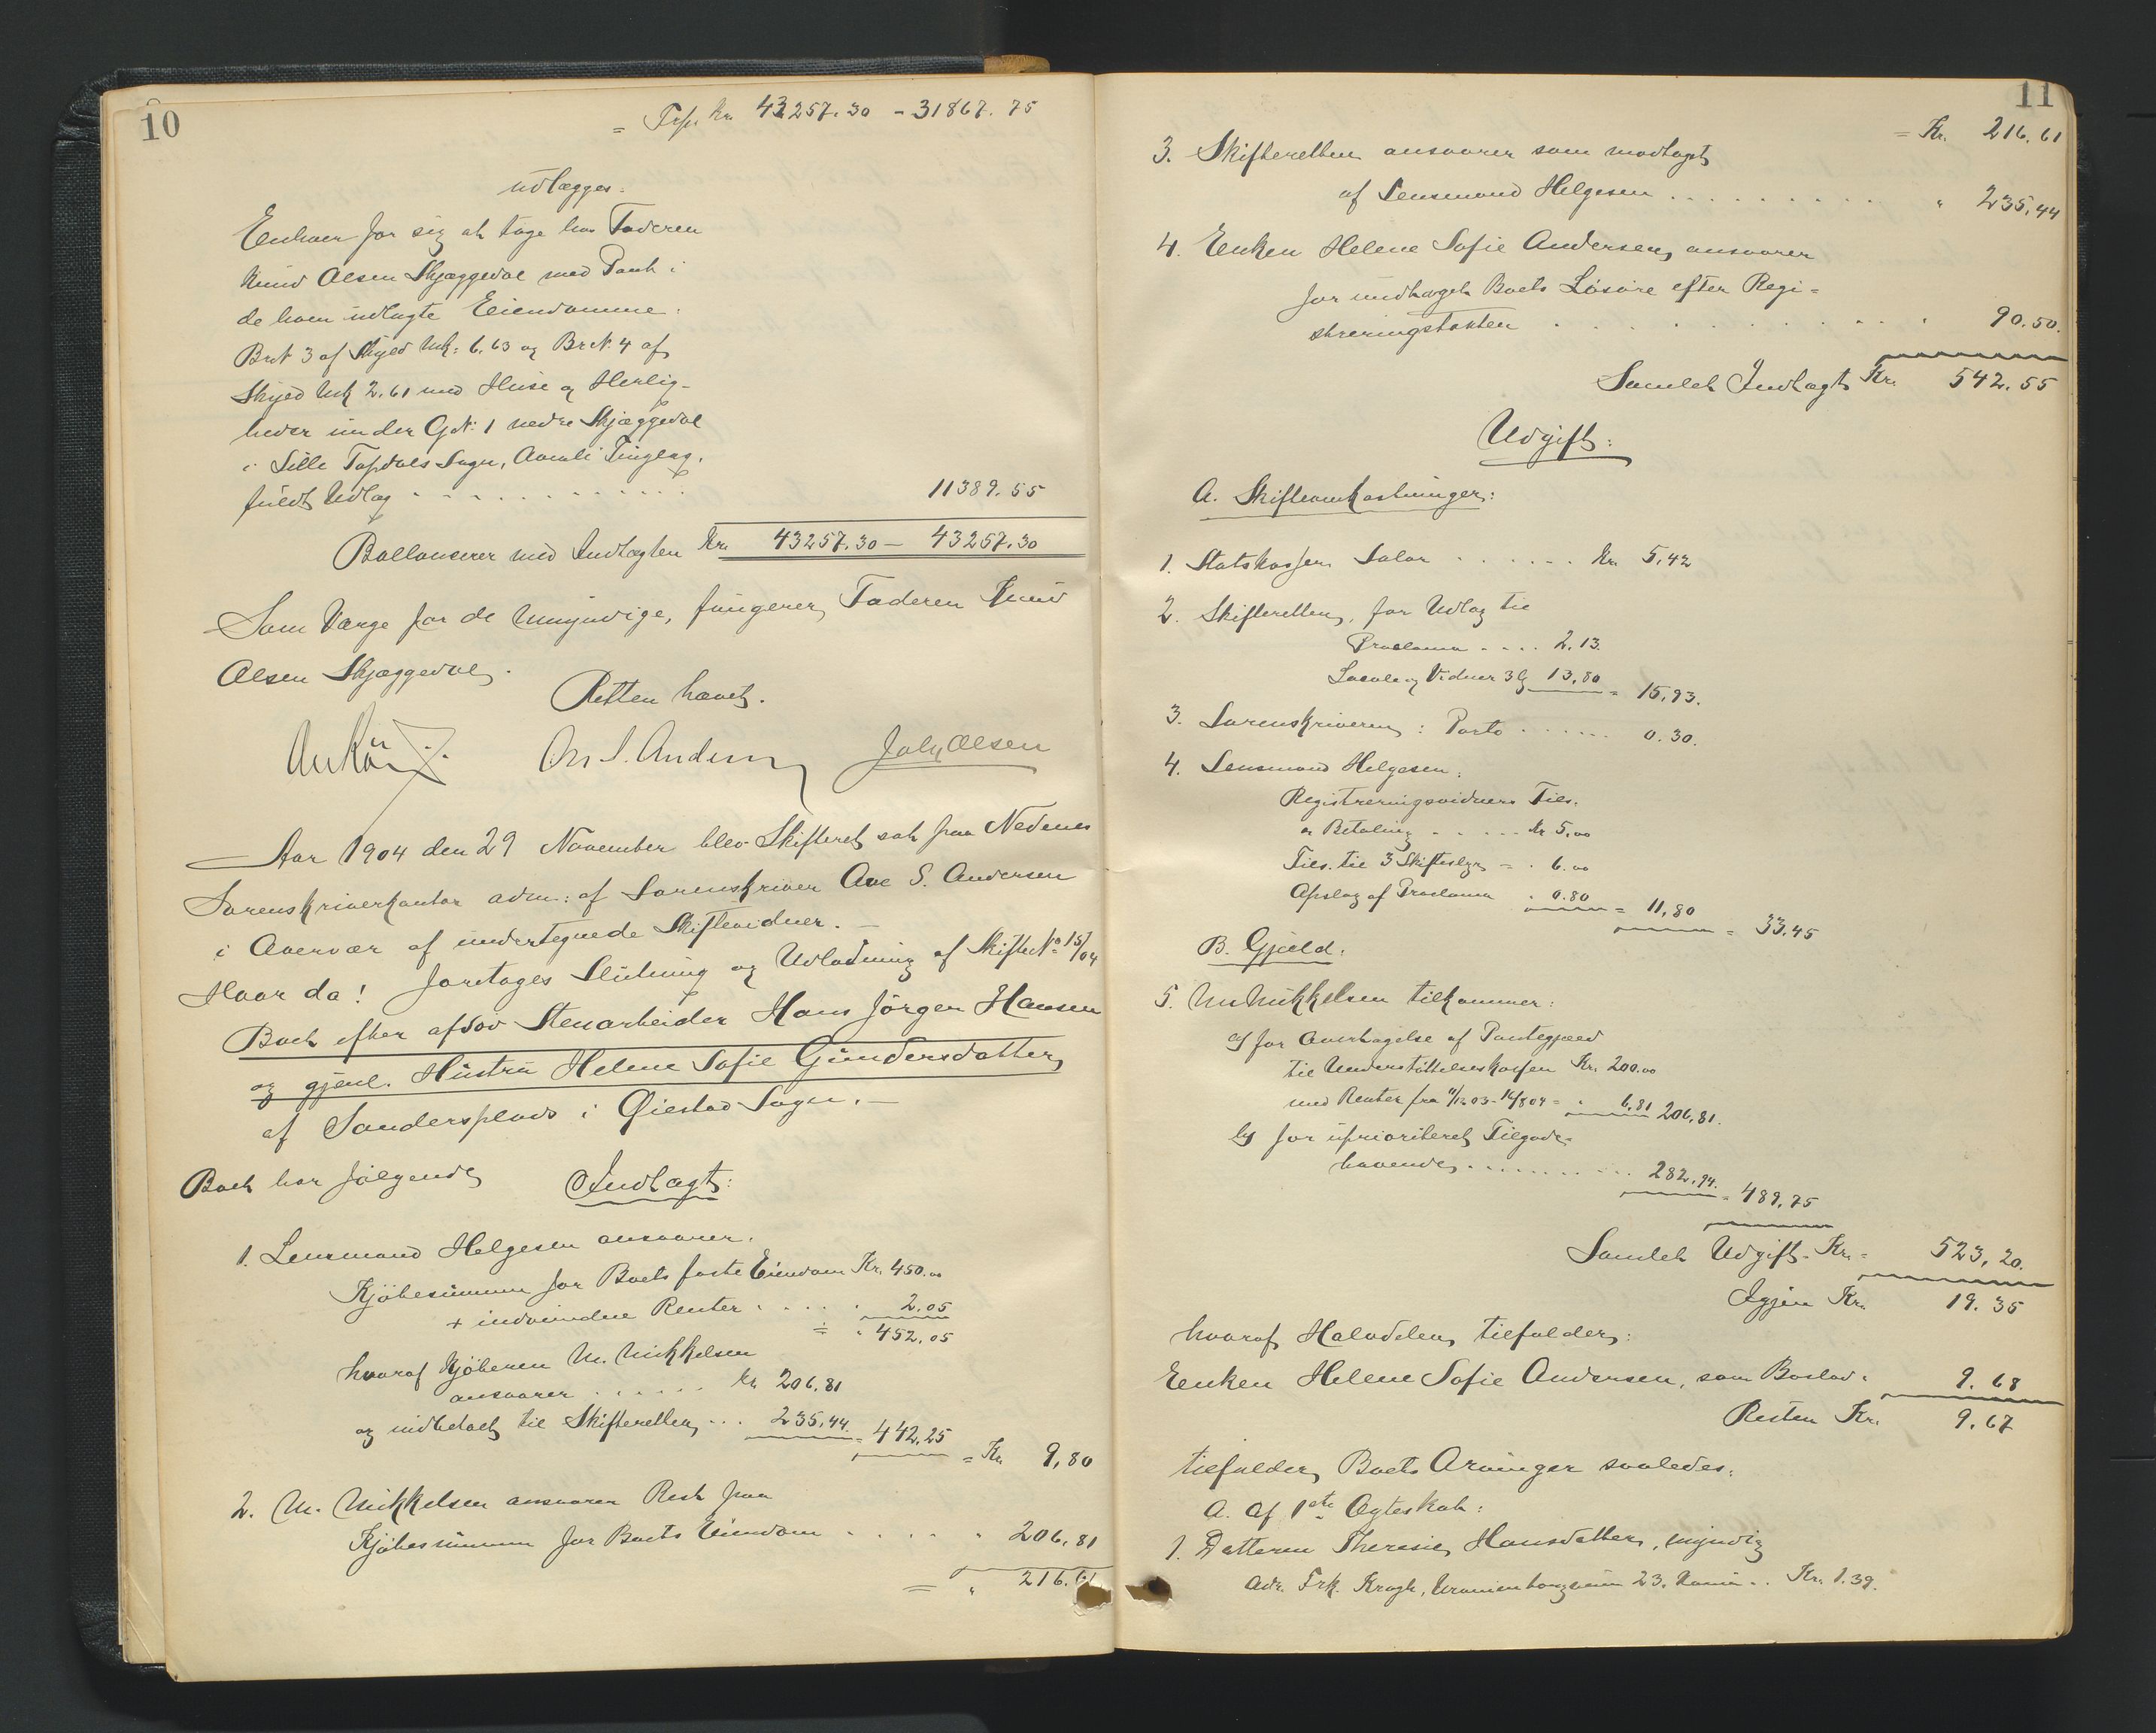 10
= Trsp. Kr. 43257.30 - 31867.75
udlægges.
Enhver for sig at tage hos Faderen
Knud Olsen Skjæggedal med Pant i
de ham udlagte Eiendomme.
Br.N. 3 af Skyld Mk: 6.63 og Br.N. 4 af
Skyld Mk 2.61 med Huse og Herlig-
heder under G.N. 1 nedre Skjæggedal
i Lille Topdals Sogn, Aamli Tinglag,
fuldt Udlæg . . . . 11389.55
Ballancerer med Indtægten Kr. 43257.30 — 43257.30
Som Værge for de Umyndige, fungerer Faderen Knud
Olsen Skjæggedal.
Retten hævet.
Ove S. Andersen Joh. Olsen
Aar 1904 den 29 November blev Skifteret sat paa Nedenes
Sorenskriverkontor adm: af Sorenskriver Ove S. Andersen
i Overvær af undertegnede Skiftevidner. —
Hvor da! foretoges Slutning og Udlodning af Skifte No 15/04
Boet efter afdød Stenarbeider Hans Jörgen Hansen
og gjenl. Hustru Helene Sofie Gundersdatter
af Sandersplads i Øiestad Sogn. —
Boet har følgende Indtægt:
1. Lensmand Helgesen ansvarer.
Kjöbesummen for Boets faste Eiendom Kr. 450.00
+ indvundne Renter . . . . 2.05
= " 452.05
hvoraf Kjöberen M. Mikkelsen
ansvarer . . . . . Kr. 206.81
og indbetalt til Skifteretten . . . 235,44. = 442,25 = Kr. 9,80
2. M. Mikkelsen ansvarer Rest paa
Kjöbesummen for Boets Eiendom . . . . " 206,81
= " 216.61
11
= Kr. 216.61
3. Skifteretten ansvarer som modtaget
af Lensmand Helgesen . . . . . . . . . " 235,44
4. Enken Helene Sofie Andersen, ansvarer
for modtaget Boets Løsøre efter Regi=
streringstaxten . . . . . . . . . . 90.50.
Samlet Indtægt Kr. 542.55
Udgift:
A. Skifteomkostninger:
1. Statskassen Salær . . . . . . Kr. 5,42
2. Skifteretten, for Udlæg til
Proclama . . . . 2.13.
Locale og Vidner 3 g 13,80 = 15,93.
3. Sorenskriveren: Porto . . . . . . 0.30.
4. Lensmand Helgesen:
Registreringsvidners Tils.
og Betaling . . . . . Kr 5,00
Tils. til 3 Skiftesbr = . 6.00
Opslag af Proclama . 0.80 = 11,80 = 33.45
B. Gjæld.
5. M. Mikkelsen tilkommer:
a) for Overtagelse af Pantegjæld
til Understöttelseskassen Kr. 200.00
med Renter fra 11/12 03 - 16/8 04 = . 6.81 206,81.
b) for uprioriteret Tilgode-
havende . . . . . . . . . . . 282,94. = 489,75
Samlet Udgift Kr. = 523,20.
Igjen Kr. 19.35
hvoraf Halvdelen tilfalder:
Enken Helene Sofie Andersen, som Boslod . 9.68
Resten Kr. 9.67
tilfalder Boets Arvinger saaledes:
A. Af 1ste Ægteskab:
1. Datteren Theresie Hansdatter, myndig
Adr. Frk. Krogh, Uranienborgveien 23. Kania . . Kr. 1.39.